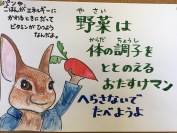 パンや、
ごはんがエネルギーに
かわるときに
ビタミンがひつよう
なんだよ。
や さい
野菜は
からだ ちょうし
体の調子を
ととのえる
おたすけマン
へらさないで
たべようよ